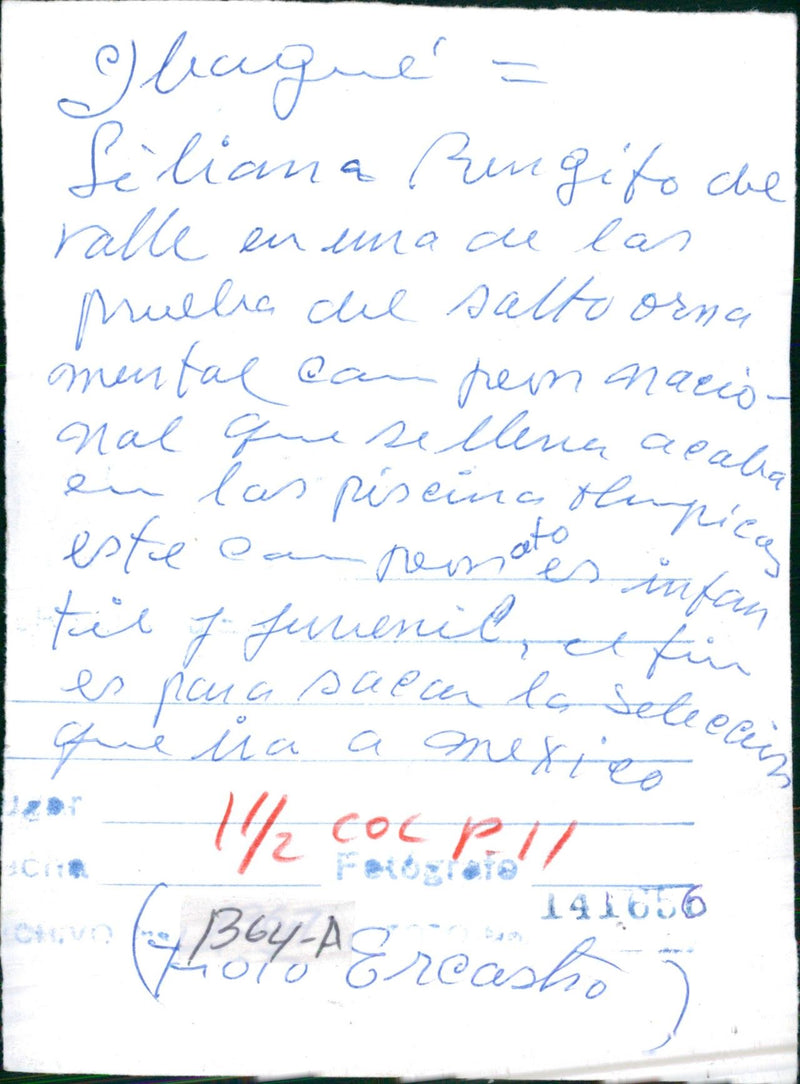 Ibagué =
Liliana Rengifo del
valle en una de las
prueba del salto orna
mental campeon nacio-
nal que se llena acaba
en las piscina olimpicas
este campeonato es infan
til y juvenil, el fin
es para sacar la selección
que ira a mexico
1 1/2 COL P. 11
Fotógrafo
141656
B64-A
Foto Ercastro